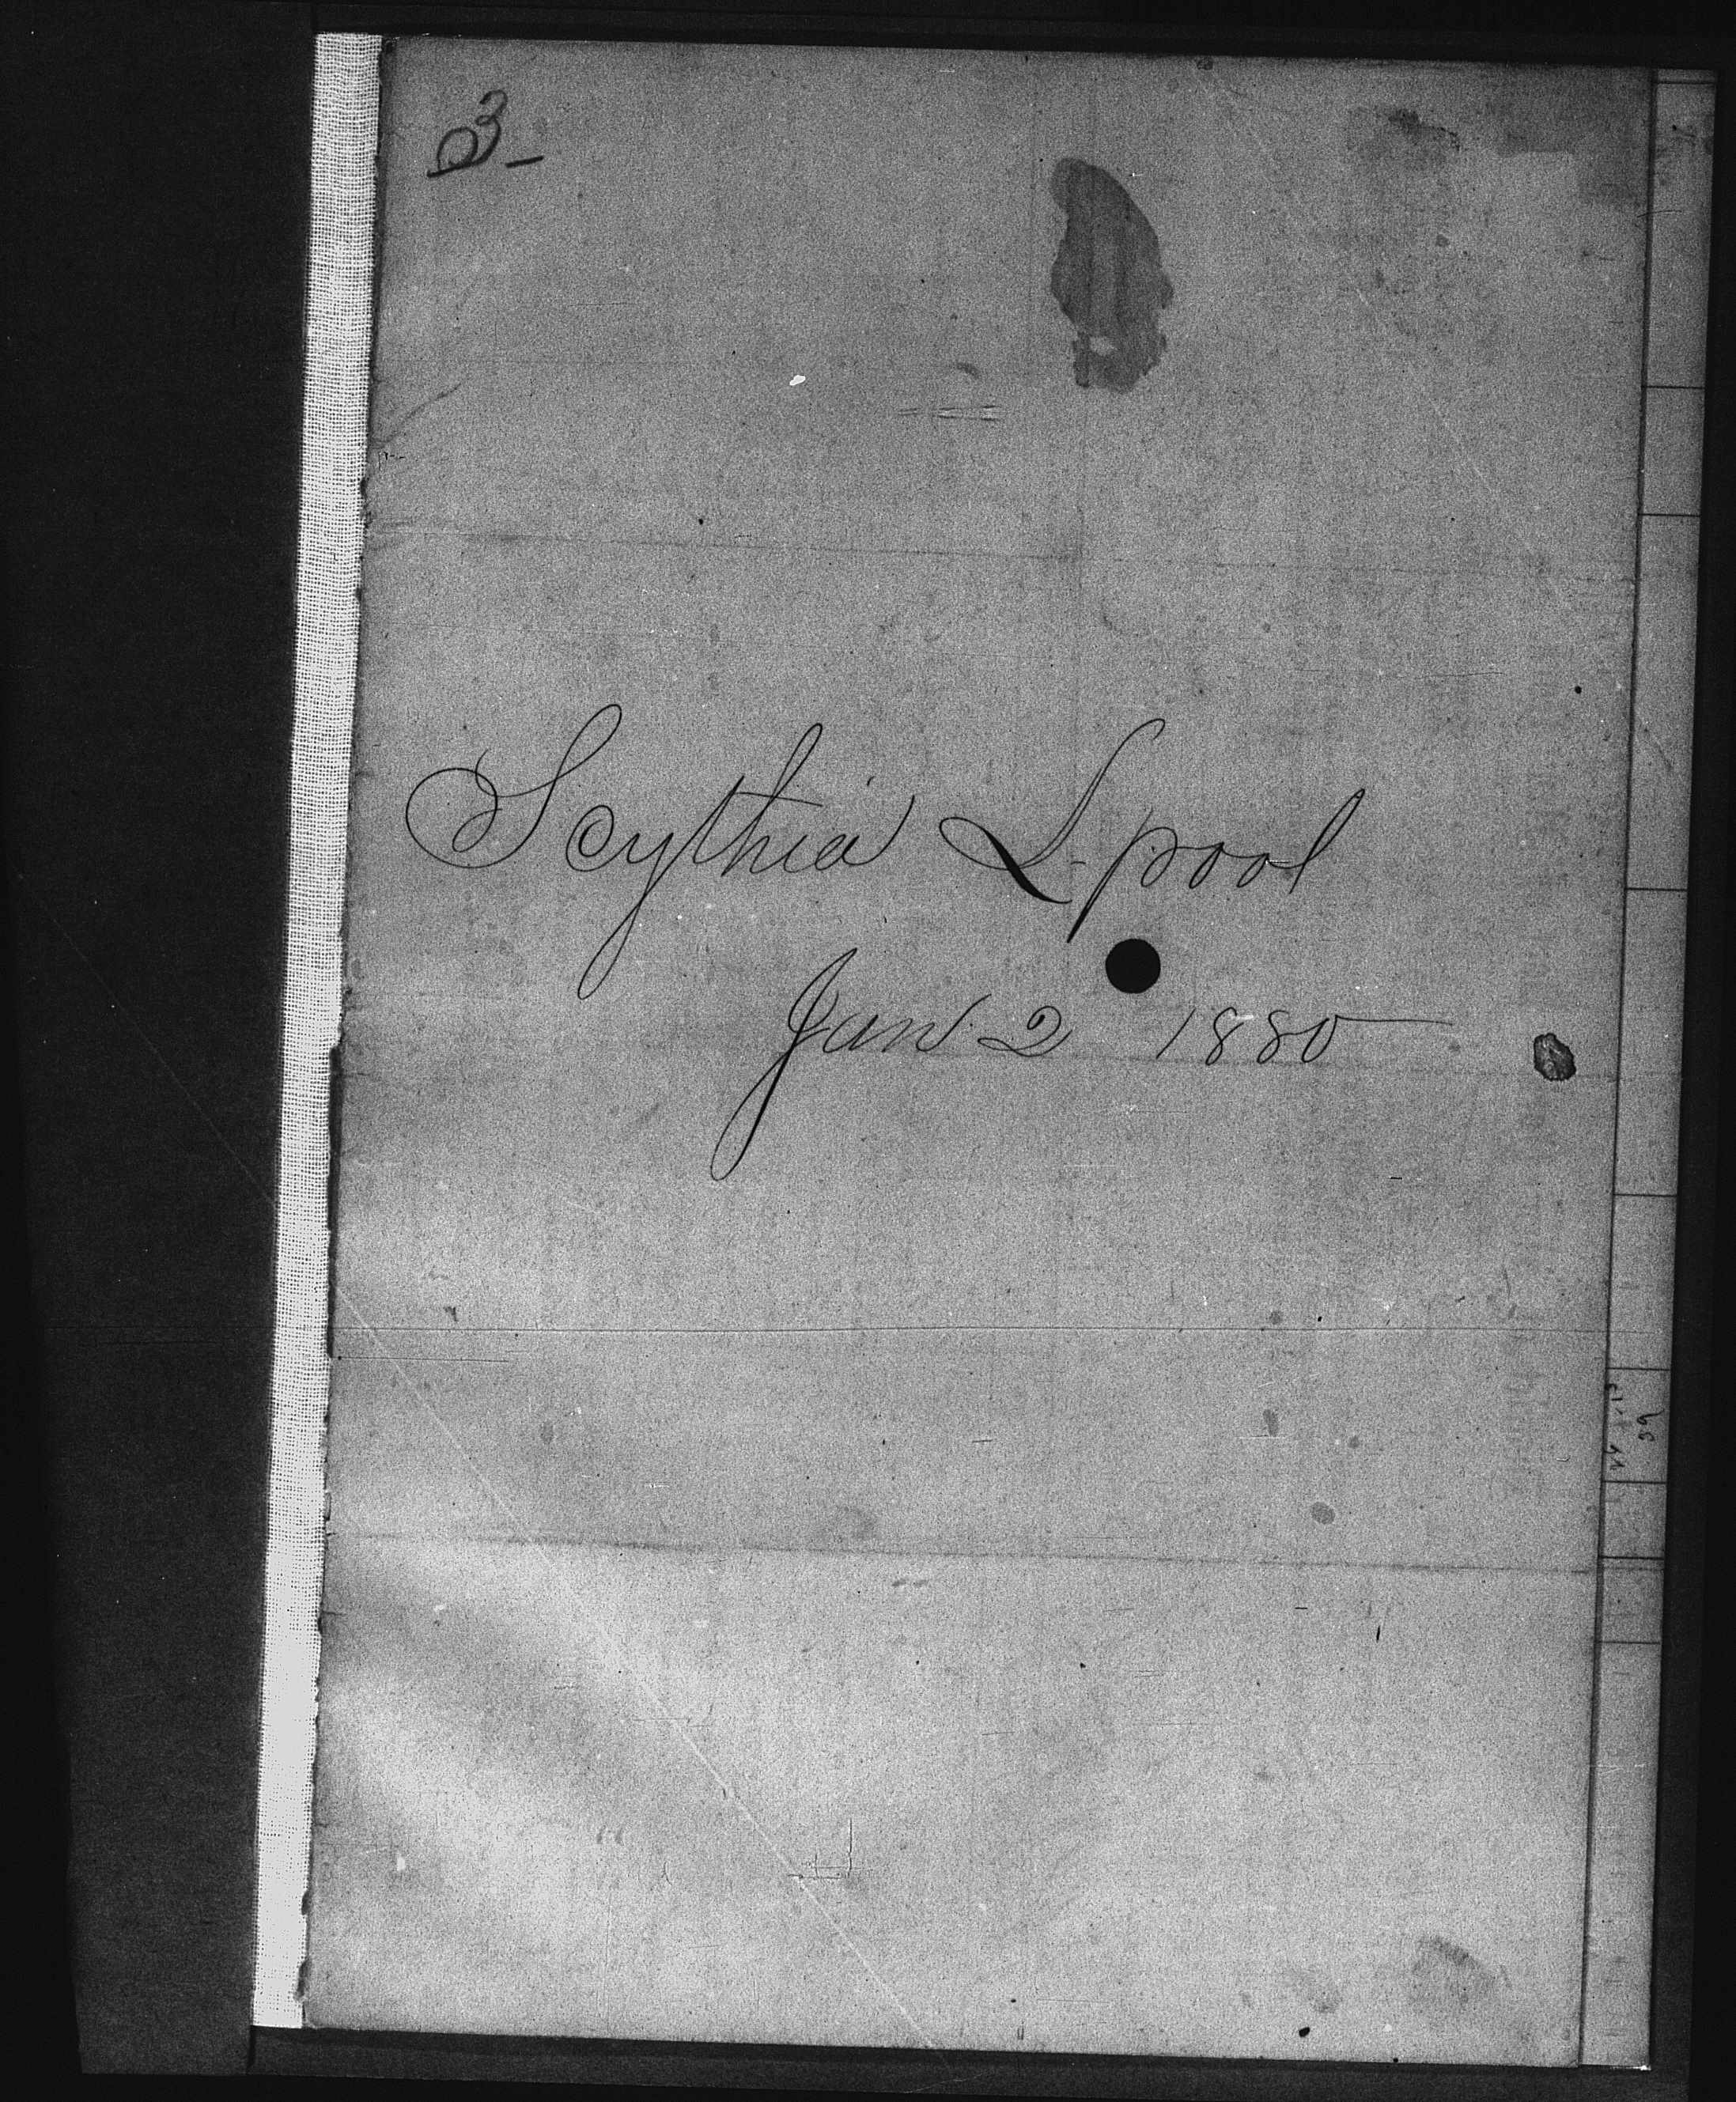 3-
Scythia L-pool
Jan 2 1880